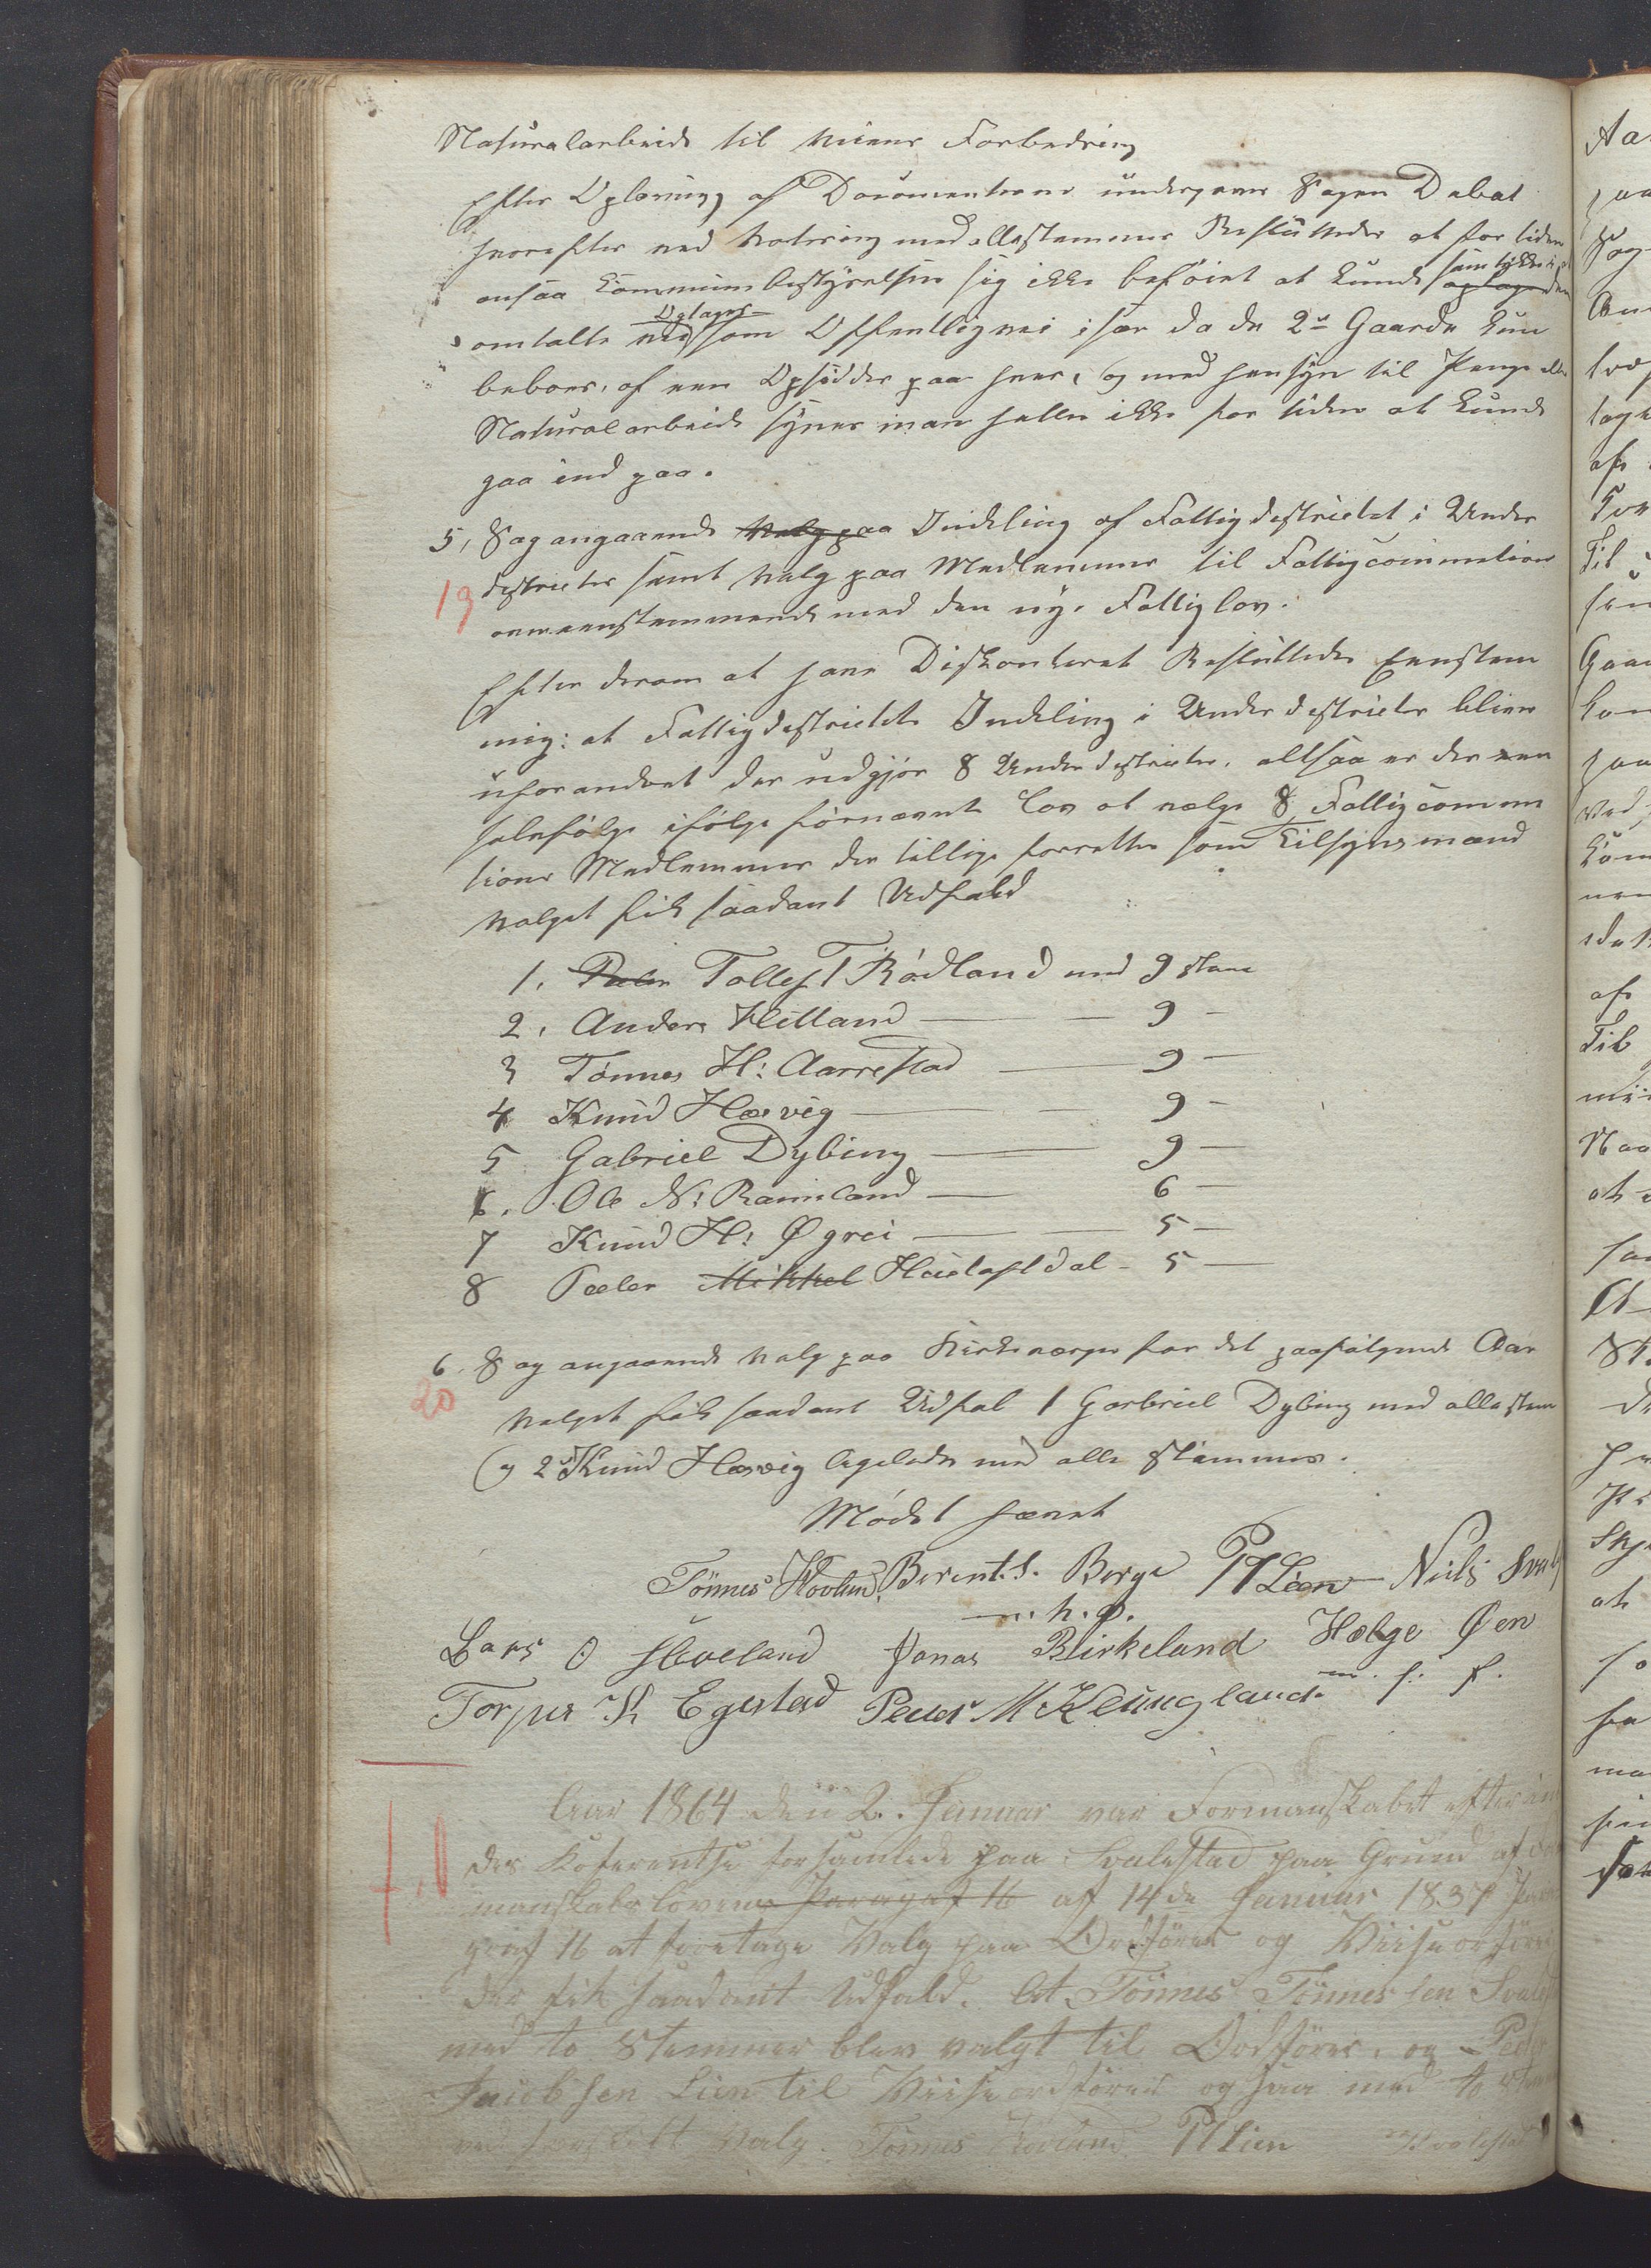 Naturalarbeide til Veiens Forbedring
Efter Oplæsning af Documenterne undergaver Sagen Debat
hvorefter ved Votering med allestemmer Besluttedes at for tiden
ansaa Communebestyrelsen sig ikke beføiet at kunde samtykke i at
optage den
Optages
omtalte vei som Offentligvei især da de 2de Gaarde kun
beboes, af een Opsidder paa hver, og med hensyn til Penge eller
Naturalarbeide synes man heller ikke for tiden at kunde
gaa ind paa.
5, Sag angaaende Valg paa Indeling af Fattigdestrictet i Under
19
destricter samt Valg paa Medlemmer til Fattigcommetion
overeenstemmende med den nye Fattiglov.
Efter derom at have Diskonteret Besluttedes Eenstem
mig: at Fattigdestrictets Indeling i Underdestricter bliver
uforandret der udgjør 8 Underdestricter. altsaa er der een
selvfølge ifølge førnævnte Lov at vælge 8 Fattigcomme
tions Medlemmer der tillige forretter som Tilsynsmænd
Valget fik saadant Udfald
1, Peder Tollef T Rødland med 9 stem
2, Anders Hetland — 9 —
3 Tønnes H: Aarrestad — 9 —
4 Knud Hævig — 9 —
5 Gabriel Dybing — 9 —
6. Ole N: Ramsland — 6 —
7 Knud H: Øgrei — 5 —
8 Peder Mikkel Heietostdal — 5 —
6. Sag angaaende Valg paa Kirkeværger for det paafølgende Aar
20
Valget fik saadant Udfal 1 Garbriel Dybing med alle stem
og 2 Knud Hævig ligeledes med alle Stemmer.
Mødet hævet
Tönnes Hovland. Berent. S. Berge PI Lien Niels
m. h. p.
Lars O Hoveland Jonas Birkeland Helge Øen
m. f. p.
Torger K Egestad Peder M Kleungland.
Aar 1864 den 2. Januar var Formanskabet efter
des Koferentse forsamlede paa Svalestad paa Grund af
manskabslovens Paragraf 16 af 14de Januar 1837
graf 16 at foretage Valg paa Ordförer og Viiseordförer
der fik saadant Udfald. At Tönnes Tönnessen
med to Stemmer blev valgt til Ordförer. og
Jacobsen Lien til Viiseordförer ogsaa med to
Valg. Tönnes Hovland PI Lien